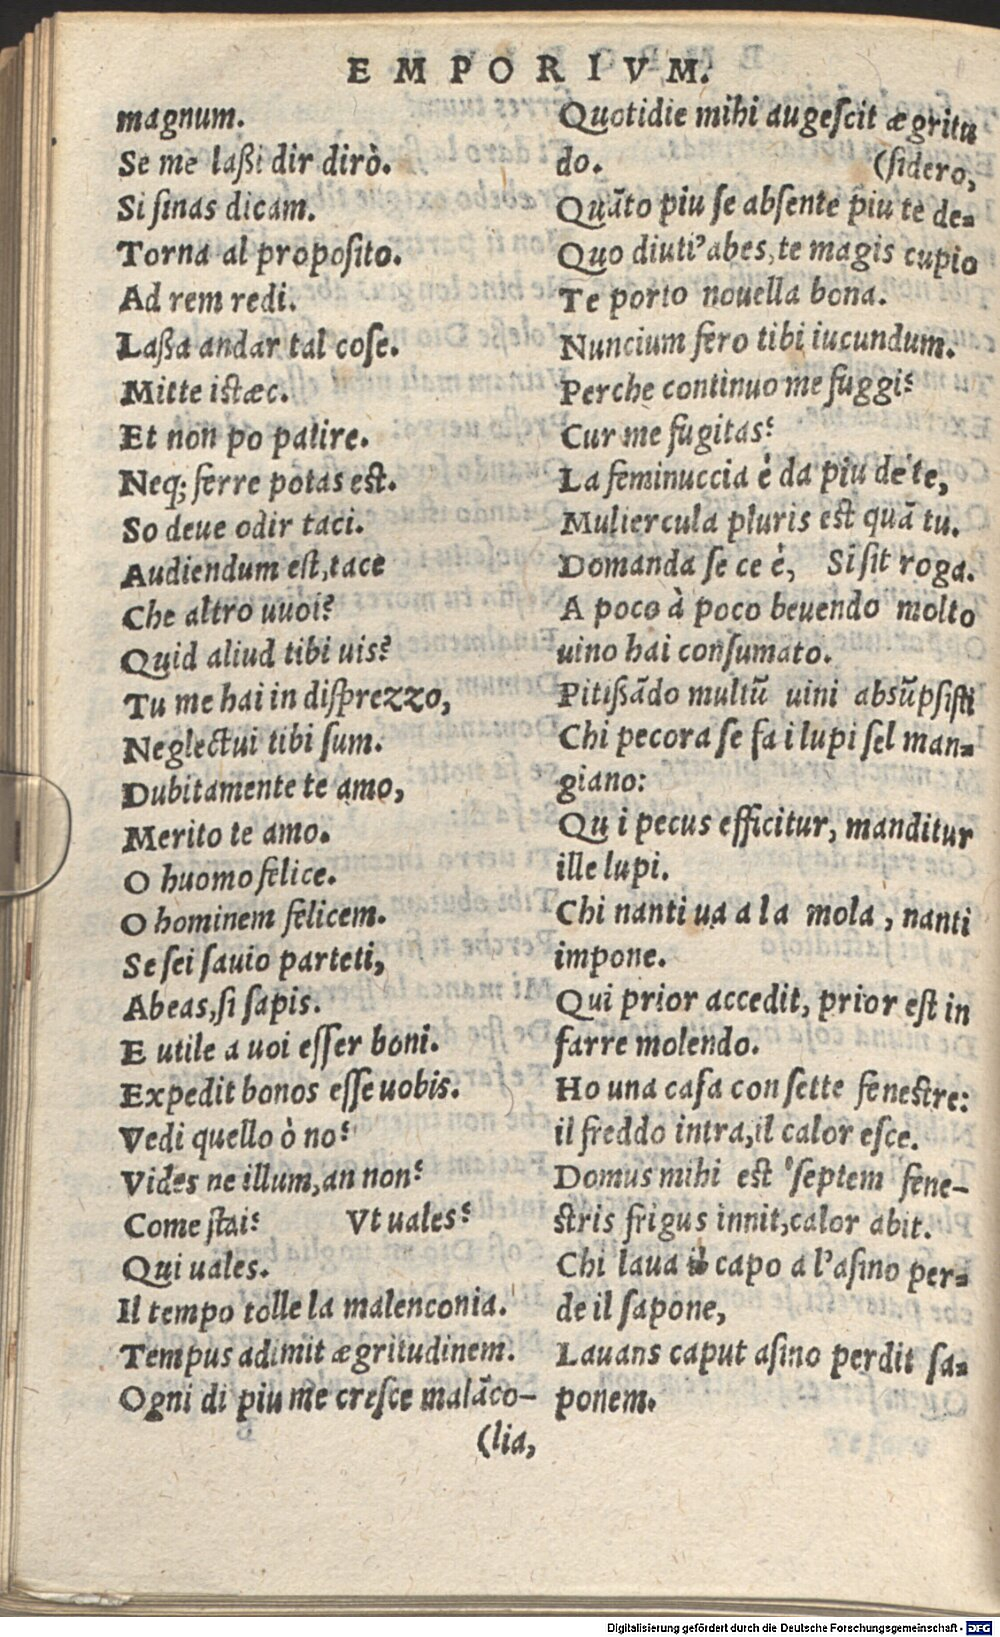 EMPORIVM.
magnum.
Se me laßi dir dirò.
Si ſinas dicam.
Torna al propoſito.
Ad rem redi.
Laßa andar tal coſe.
Mitte istæc.
Et non po patire.
Neq; ferre potas est.
So deue odir taci.
Audiendum eſt, tace
Che altro uuoi?
Quid aliud tibi uis?
Tu me hai in diſprezzo,
Neglectui tibi ſum.
Dubitamente te amo,
Merito te amo.
O huomo felice.
O hominem felicem.
Se ſei ſauio parteti,
Abeas, ſi ſapis.
E utile a uoi eſſer boni.
Expedit bonos eſſe uobis.
Vedi quello ò no?
Vides ne illum, an non?
Come ſtai? Vt uales?
Qui uales.
Il tempo tolle la malenconia.
Tempus adimit ægritudinem.
Ogni di piu me creſce malãco-
(lia,
Quotidie mihi augeſcit ægritu
do. (ſidero,
Quãto piu ſe abſente piu te de=
Quo diuti' abes, te magis cupio
Te porto nouella bona.
Nuncium fero tibi iucundum.
Perche continuo me fuggi?
Cur me fugitas?
La feminuccia è da piu de te,
Muliercula pluris est quã tu.
Domanda ſe ce è, Si ſit roga.
A poco à poco beuendo molto
uino hai conſumato.
Pitißãdo multũ uini abſũpſiſti
Chi pecora ſe fa i lupi ſel man=
giano:
Qu i pecus efficitur, manditur
ille lupi.
Chi nanti ua a la mola, nanti
impone.
Qui prior accedit, prior eſt in
farre molendo.
Ho una caſa con ſette fenestre:
il freddo intra, il calor eſce.
Domus mihi est 'ſeptem fene-
stris frigus innit, calor abit.
Chi laua il capo a l'aſino per=
de il ſapone,
Lauans caput aſino perdit ſa=
ponem.
Digitalisierung gefördert durch die Deutsche Forschungsgemeinschaft - DFG